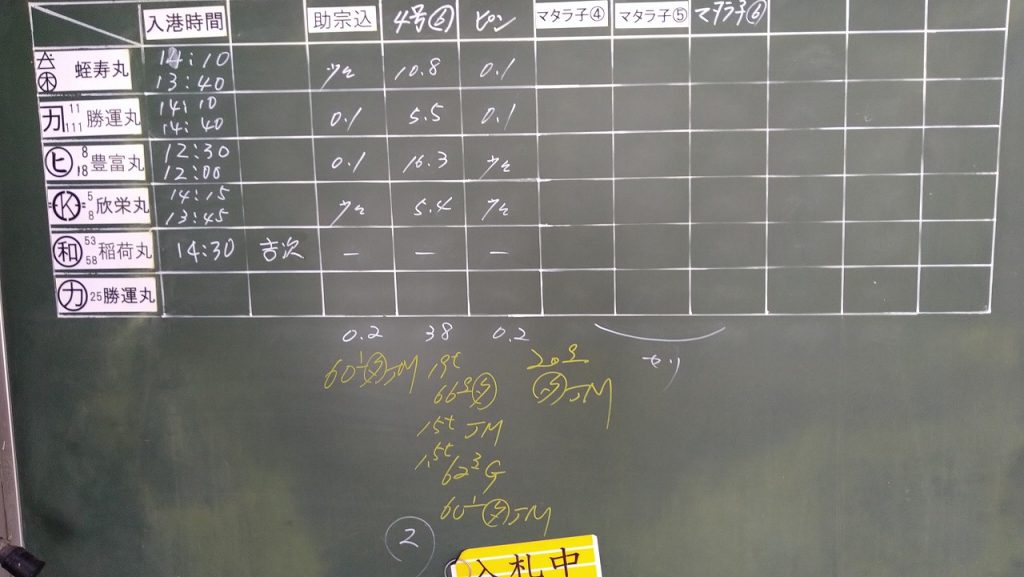 入港時間 助宗込 4号⑥ ピン マタラ子④ マタラ子⑤ マタラ子⑥
蛭寿丸 14:10 13:40 少々 10.8 0.1
11 111 勝運丸 14:10 14:40 0.1 5.5 0.1
ヒ 8 18 豊富丸 12:30 12:00 0.1 16.3 少々
K 5 8 欣栄丸 14:15 13:45 少々 5.4 少々
和 53 58 稲荷丸 14:30 吉次 – – –
カ 25 勝運丸
0.2 38 0.2
セリ
JM
15t JM
1.5t
62³ G
JM
2
入札中